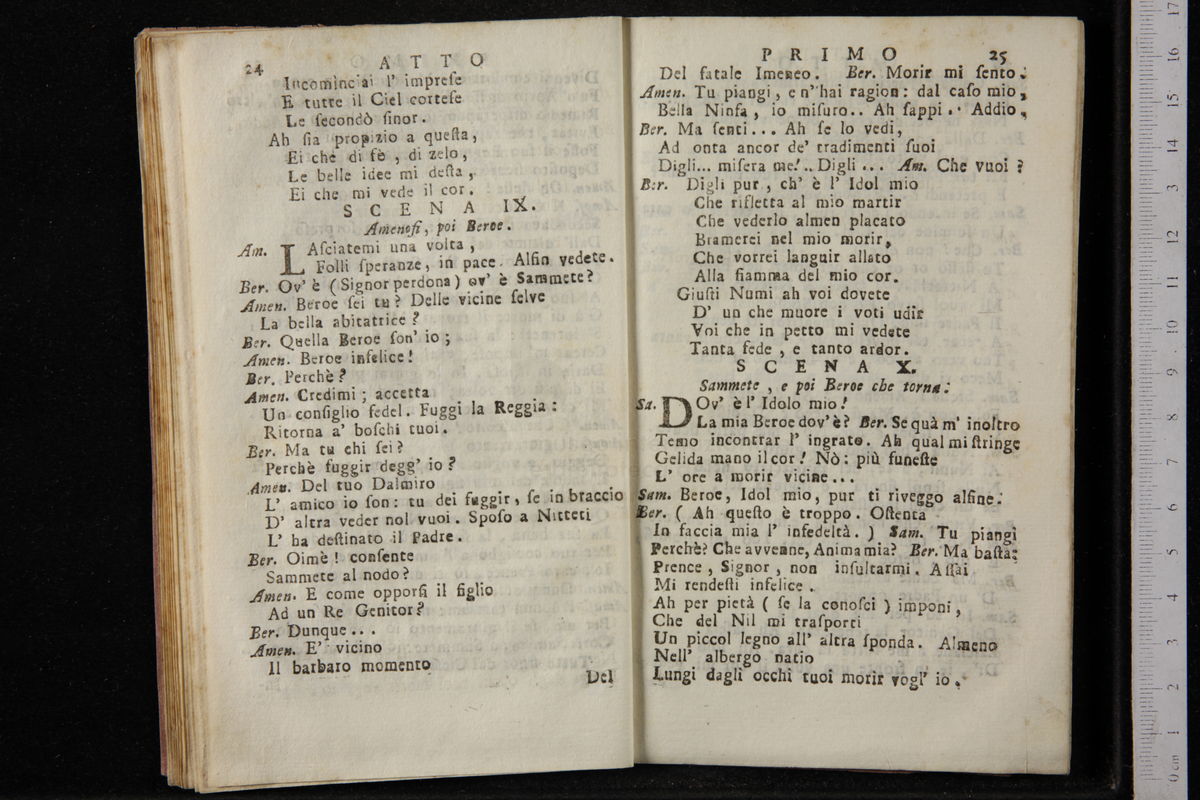 24 ATTO
Incominciai l' imprese
E tutte il Ciel cortese
Le secondò sinor.
Ah sia propizio a questa,
Ei che di fè, di zelo,
Le belle idee mi desta,
Ei che mi vede il cor.
SCENA IX.
Amenofi, poi Beroe.
Am. LAsciatemi una volta,
Folli speranze, in pace. Alfin vedete.
Ber. Ov' è (Signor perdona) ov' è Sammete?
Amen. Beroe sei tu? Delle vicine selve
La bella abitatrice?
Ber. Quella Beroe son' io;
Amen. Beroe infelice!
Ber. Perchè?
Amen. Credimi; accetta
Un consiglio fedel. Fuggi la Reggia:
Ritorna a' boschi tuoi.
Ber. Ma tu chi sei?
Perchè fuggir degg' io?
Amen. Del tuo Dalmiro
L' amico io son: tu dei fuggir, se in braccio
D' altra veder nol vuoi. Sposo a Nitteti
L' ha destinato il Padre.
Ber. Oimè! consente
Sammete al nodo?
Amen. E come opporsi il figlio
Ad un Re Genitor?
Ber. Dunque...
Amen. E' vicino
Il barbaro momento
Del
PRIMO 25
Del fatale Imeneo. Ber. Morir mi sento.
Amen. Tu piangi, e n' hai ragion: dal caso mio,
Bella Ninfa, io misuro.. Ah sappi.. Addio,
Ber. Ma senti... Ah se lo vedi,
Ad onta ancor de' tradimenti suoi
Digli... misera me!.. Digli... Am. Che vuoi?
Ber. Digli pur, ch' è l' Idol mio
Che rifletta al mio martir
Che vederlo almen placato
Bramerei nel mio morir,
Che vorrei languir allato
Alla fiamma del mio cor.
Giusti Numi ah voi dovete
D' un che muore i voti udir
Voi che in petto mi vedete
Tanta fede, e tanto ardor.
SCENA X.
Sammete, e poi Beroe che torna:
Sa. DOv' è l' Idolo mio!
La mia Beroe dov'è? Ber. Se quà m' inoltro
Temo incontrar l' ingrato. Ah qual mi stringe
Gelida mano il cor! Nò: più funeste
L' ore a morir vicine...
Sam. Beroe, Idol mio, pur ti riveggo alfine.
Ber. (Ah questo è troppo. Ostenta
In faccia mia l' infedeltà.) Sam. Tu piangi
Perchè? Che avvenne, Anima mia? Ber. Ma basta:
Prence, Signor, non insultarmi. Assai
Mi rendesti infelice.
Ah per pietà (se la conosci) imponi,
Che del Nil mi trasporti
Un piccol legno all' altra sponda. Almeno
Nell' albergo natio
Lungi dagli occhi tuoi morir vogl' io.
0 cm 1 2 3 4 5 6 7 8 9 10 11 12 13 14 15 16 17